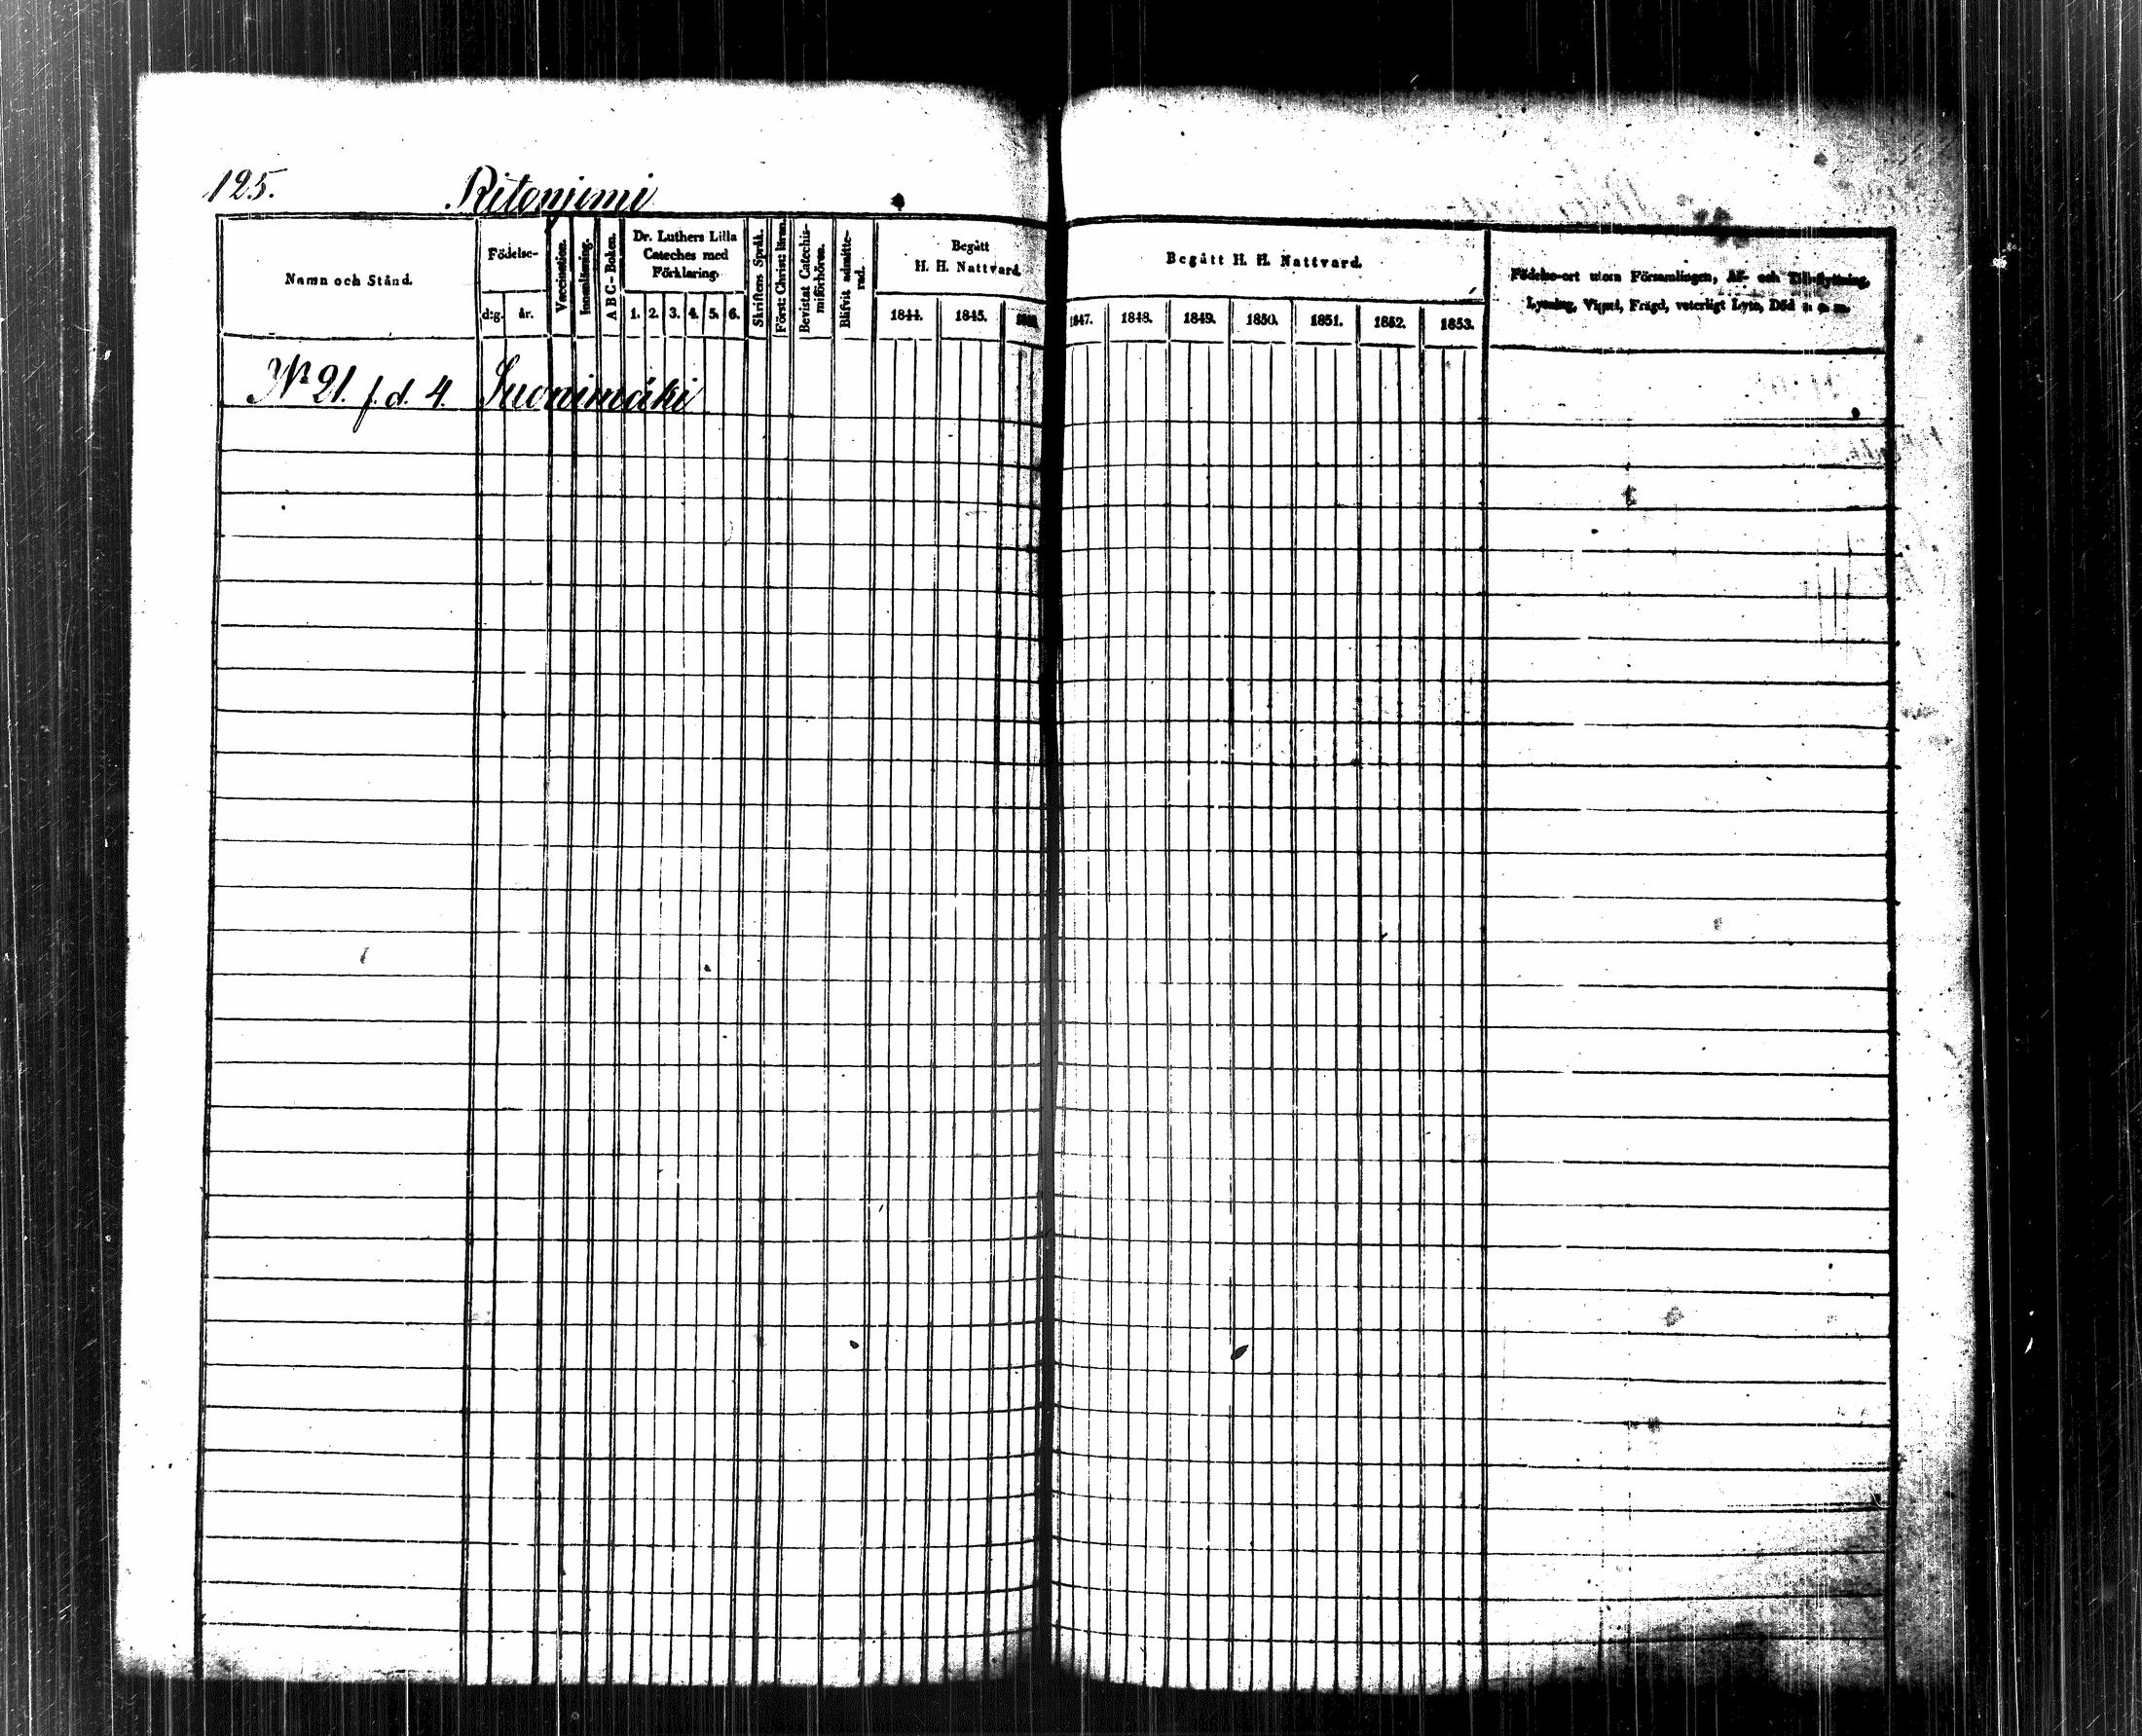 125. Ritonjemi
Namn och Stånd.
Födelse-
d:g. år.
Vaccination.
Innanläsning.
A B C-Boken.
Dr. Luthers Lilla
Cateches med
Förklaring.
1. 2. 3. 4. 5. 6.
Skriftens Språk.
Först: Christ: läran.
Bevistat Catechis-
miförhören.
Blifvit admitte-
rad.
Begått
H. H. Nattvard.
1844. 1845. 1846.
Begått H. H. Nattvard.
1847. 1848. 1849. 1850. 1851. 1852. 1853.
Födelse-ort utom Församlingen, Af- och Tillflyttning,
Lysning, Vigsel, Frägd, veterligt Lyte, Död o. s. m.
No 21. f. d. 4. Suonimäki